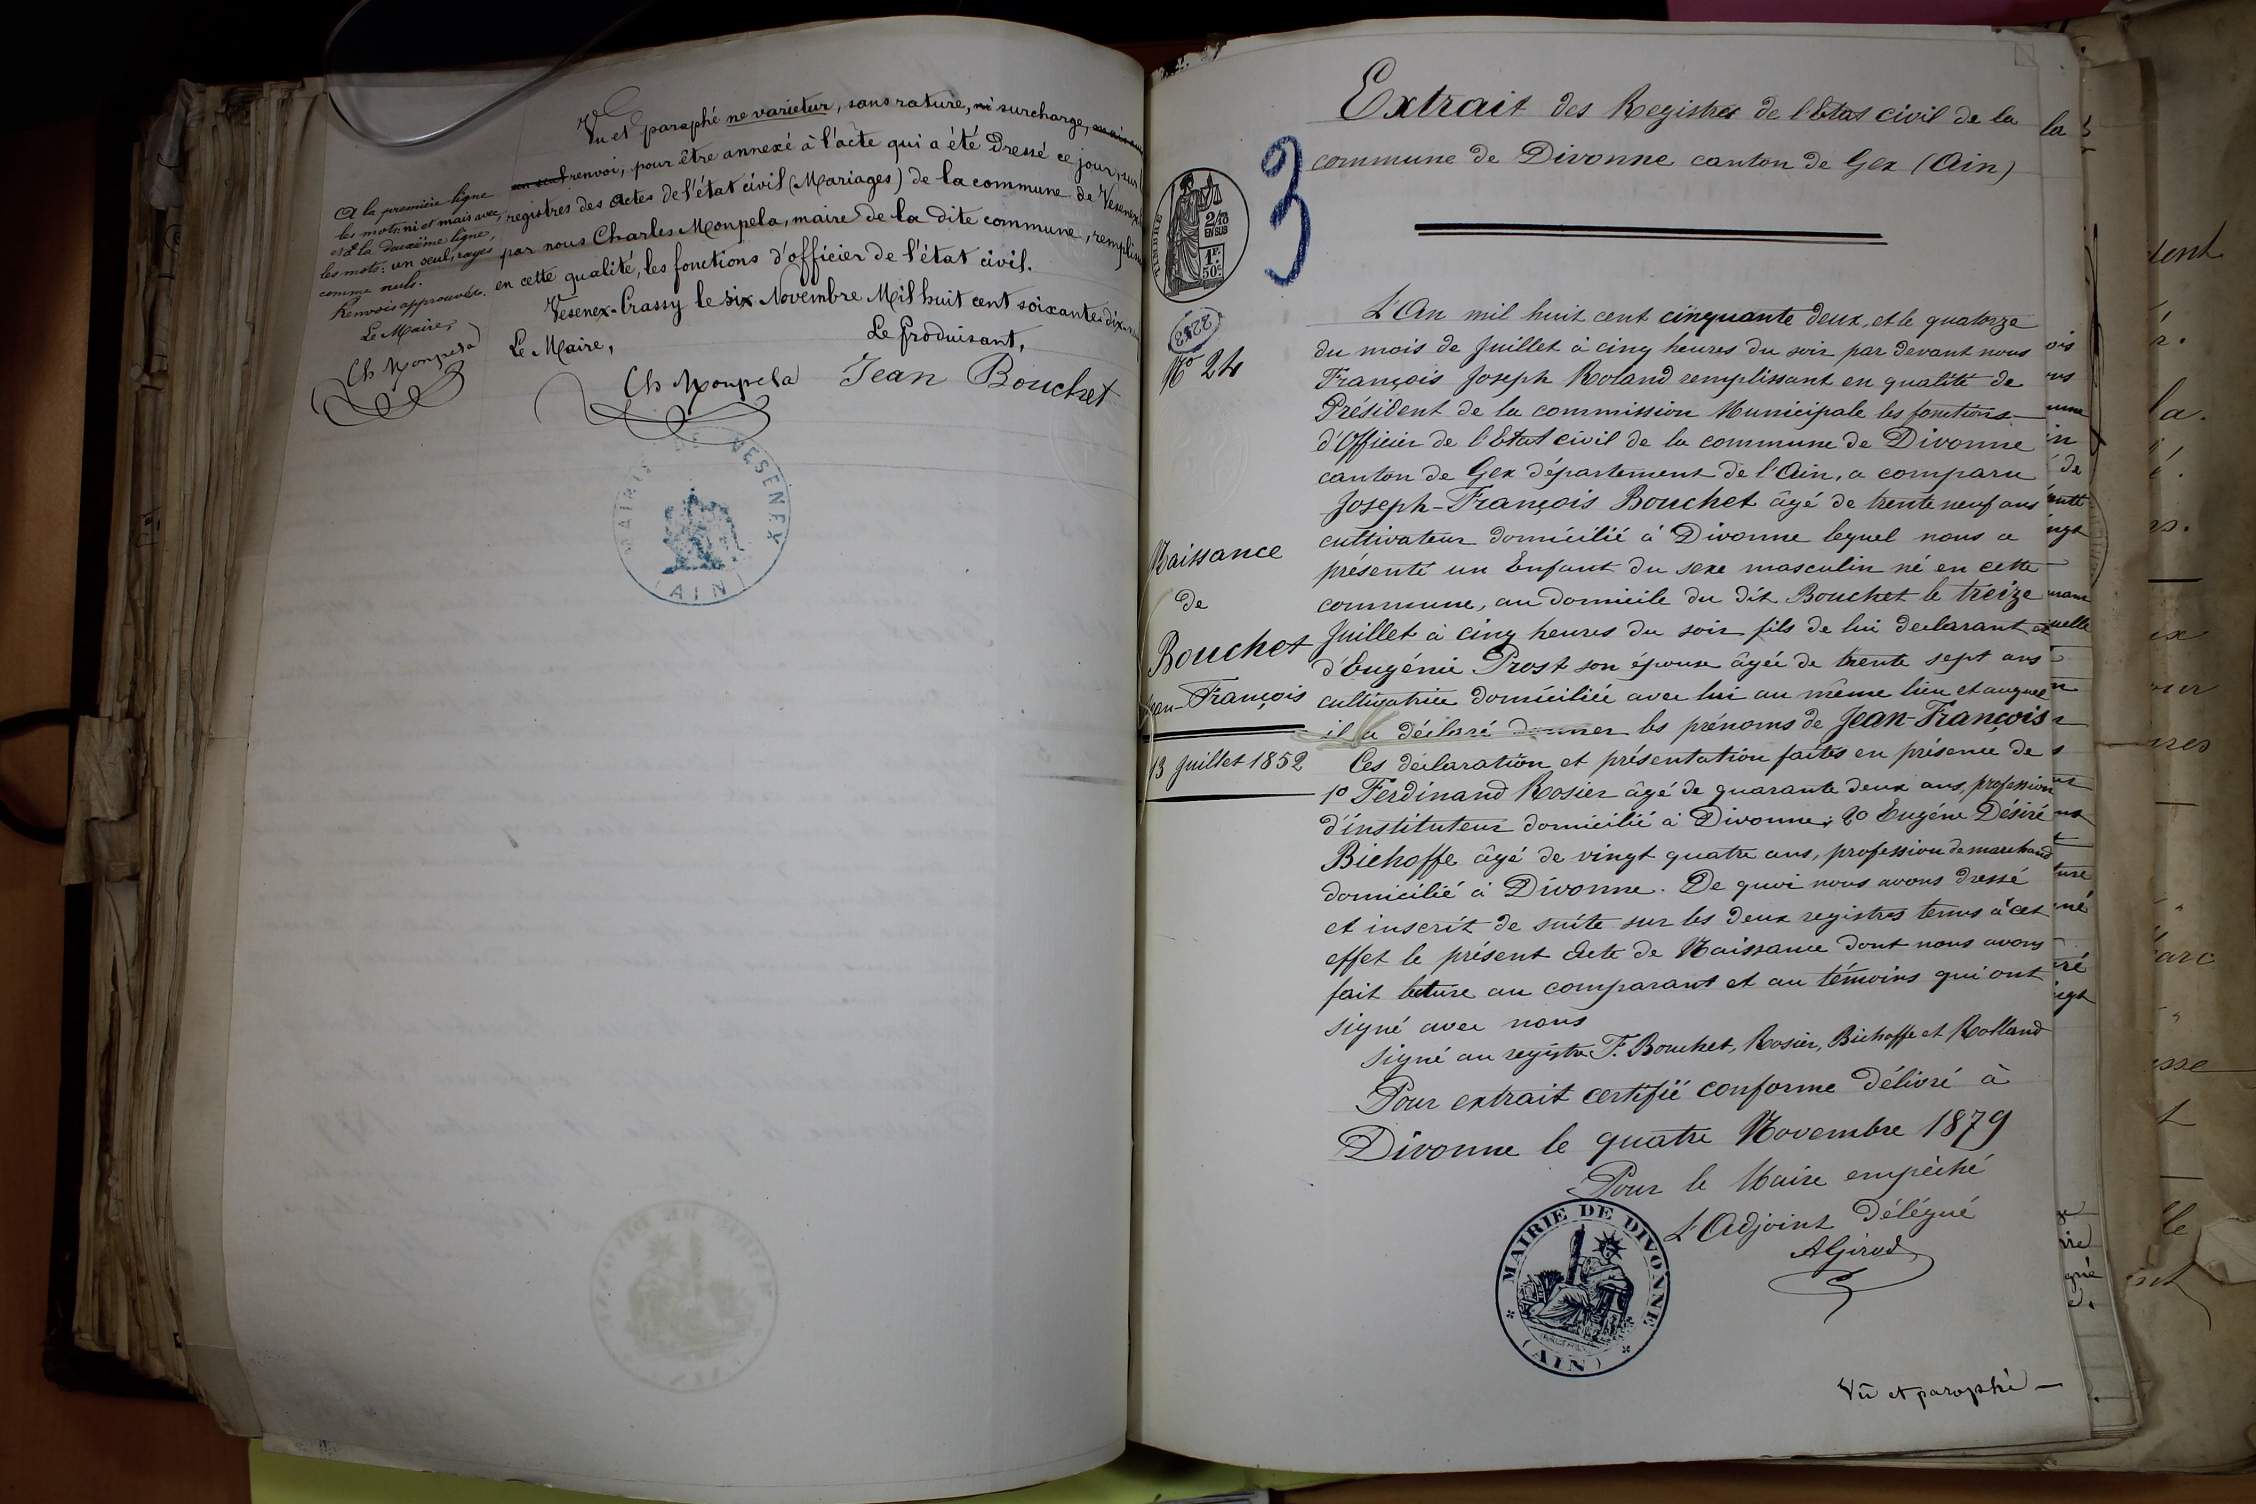 Vu et paraphé ne varietur, sans rature, ni surcharge,
un seul renvoi, pour être annexé à l'acte qui a été Dressé ce jour, sur
registres des Actes de l'état civil (Mariages) de la commune de Vesenex
par nous Charles Monpela, maire de la dite commune, remplissant
en cette qualité, les fonctions d'officier de l'état civil.
Vesenex-Crassy le six Novembre Mil huit cent soixante-dix-
Le Maire,
Le Produisant,
Ch Monpela
Jean Bouchet
A la première ligne
les mots: ni et mais avec,
et à la deuxième ligne,
les mots: un seul, rayés
comme nuls.
Renvois approuvés.
Le Maire,
Ch Monpela
MAIRIE DE VESENEX
(AIN)
Extrait des Registres de l'Etat civil de la
commune de Divonne canton de Gex (Ain)
3
TIMBRE
2/10
EN SUS
1F.
50c.
No 24
Naissance
de
Bouchet
Jean-François
13 Juillet 1852
L'An mil huit cent cinquante deux, et le quatorze
du mois de Juillet à cinq heures du soir par devant nous
François Joseph Roland remplissant en qualité de
Président de la commission Municipale les fonctions
d'Officier de l'Etat civil de la commune de Divonne
canton de Gex département de l'Ain, a comparu
Joseph-François Bouchet âgé de trente neuf ans
cultivateur domicilié à Divonne lequel nous a
présenté un Enfant du sexe masculin né en cette
commune, au domicile du dit Bouchet le treize
Juillet à cinq heures du soir fils de lui declarant et
d'Eugénie Prost son épouse âgée de trente sept ans
cultivatrice domiciliée avec lui au même lieu et auquel
il a déclaré donner les prénoms de Jean-François
Ces déclaration et présentation faites en présence de
1o Ferdinand Rosier âgé de quarante deux ans, profession
d'instituteur domicilié à Divonne; 2o Eugène Désiré
Bichoffe âgé de vingt quatre ans, profession de marchand
domicilié à Divonne. De quoi nous avons dressé
et inscrit de suite sur les deux registres tenus à cet
effet le présent Acte de Naissance dont nous avons
fait lecture au comparant et au témoins qui ont
signé avec nous
Signé au registre F. Bouchet, Rosier, Bichoffe et Rolland
Pour extrait certifié conforme Délivré à
Divonne le quatre Novembre 1879
Pour le Maire empêché
L'Adjoint Délégué
AGirod
MAIRIE DE DIVONNE
(AIN)
Vu et paraphé